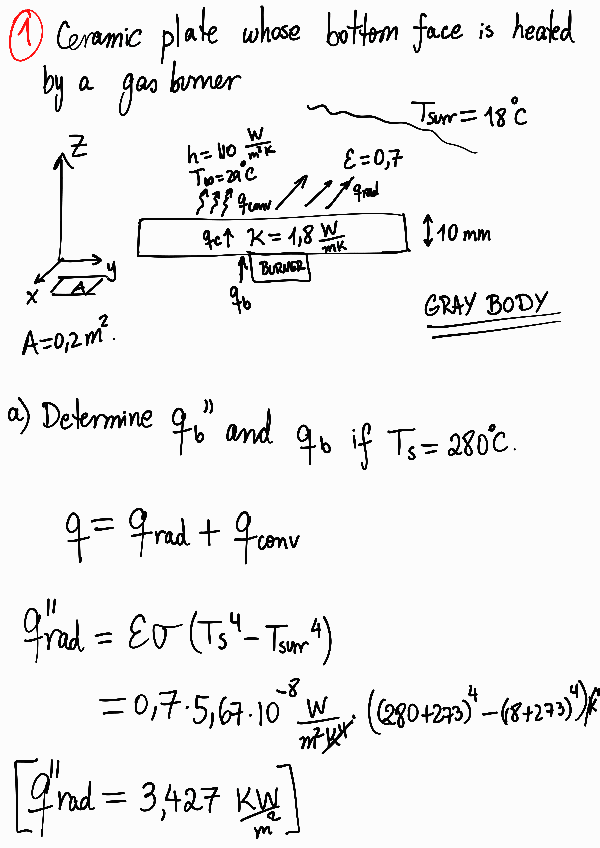 1) Ceramic plate whose bottom face is heated
by a gas burner
Tsurr = 18°C
Z
h = 110 W/m²K
ε = 0,7
T∞ = 29°C
qconv
qrad
qc↑ K = 1,8 W/mK
10 mm
BURNER
y
x
A
qb
GRAY BODY
A = 0,2 m².
a) Determine qb'' and qb if Ts = 280°C.
q = qrad + qconv
q''rad = εσ (Ts⁴ - Tsurr⁴)
= 0,7 · 5,67 · 10⁻⁸ W/m²K⁴ · ((280+273)⁴ - (18+273)⁴) K⁴
[q''rad = 3,427 KW/m²]